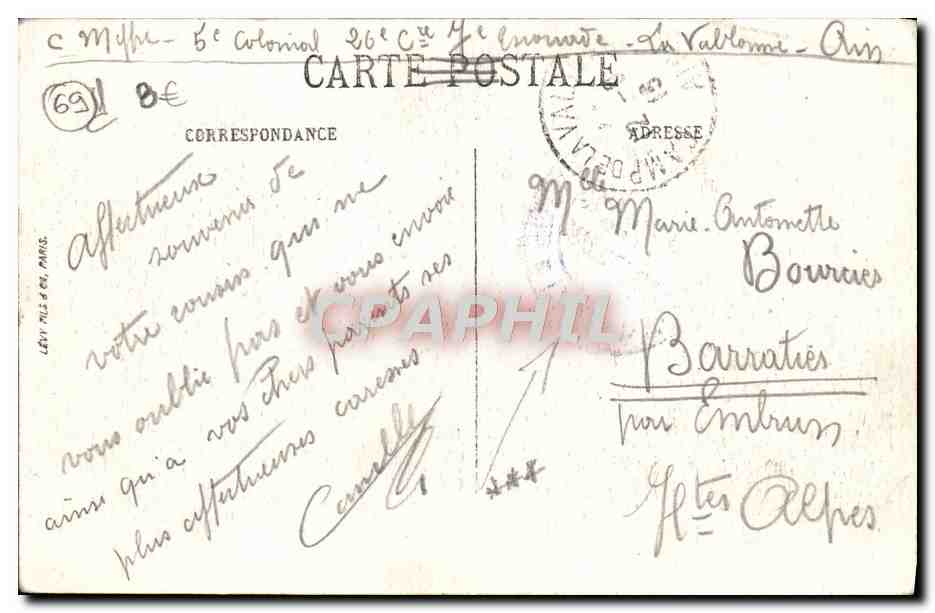 5e Colonial 26e Cie 7e Escouade - La Valbonne - Ain
CARTE POSTALE
69
8€
CORRESPONDANCE
ADRESSE
CAMP DE LA VAL
Affectueux
souvenir de
votre cousin qui ne
vous oublie pas et vous envoie
ainsi qu'a vos chers parents ses
plus affectueuses caresses
Camille
Mlle Marie-Antoinette
Bourcier
Barraties
par Embrun
Htes Alpes
***
LEVY FILS & Cie, PARIS.
CPAPHIL